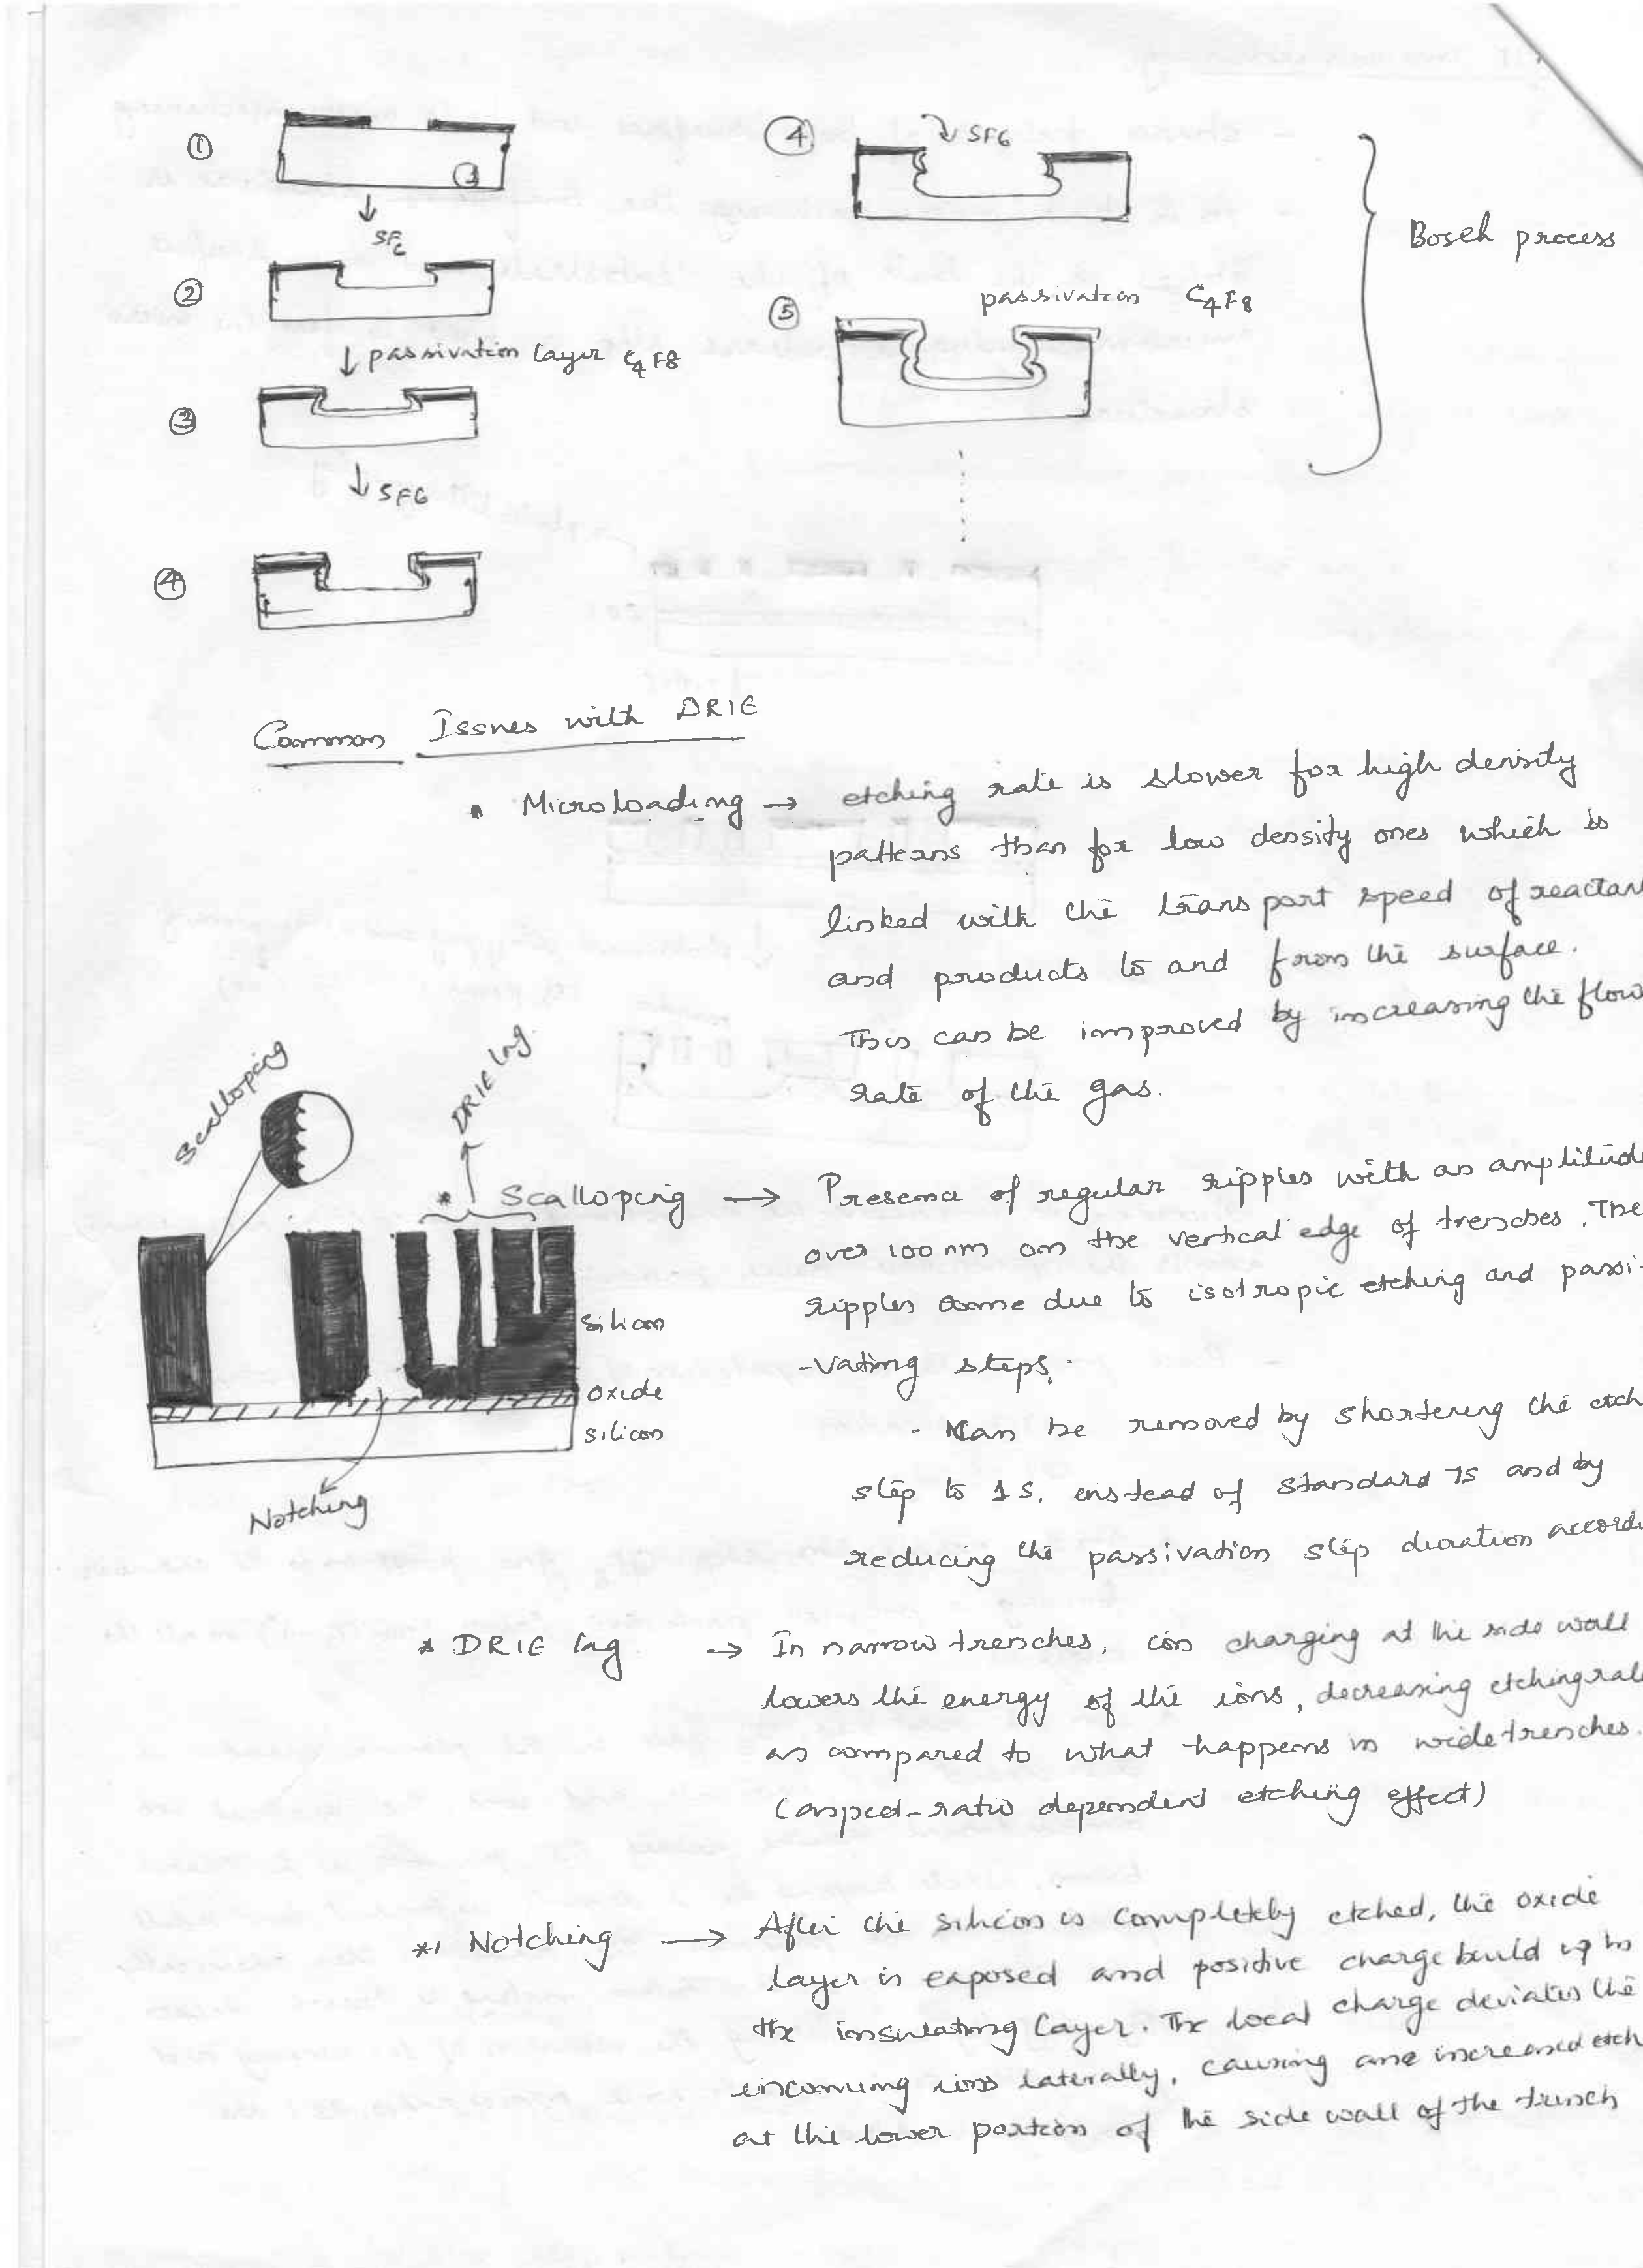 ①
↓
SF6
②
↓ passivation layer C4F8
③
↓ SF6
④
④
SF6
passivation C4F8
⑤
Bosch process
Common Issues with DRIE
* Microloading → etching rate is slower for high density
patterns than for low density ones which is
linked with the transport speed of reactan
and products to and from the surface.
This can be improved by increasing the flow
rate of the gas.
Scalloping
DRIE lag
silicon
oxide
silicon
Notching
* Scalloping → Presence of regular ripples with an amplitude
over 100 nm on the vertical edge of trenches. The
ripples come due to isotropic etching and passi-
-vating steps.
- Can be removed by shortening the etch
step to 1 S, instead of standard 7S and by
reducing the passivation step duration accordi
* DRIE lag → In narrow trenches, ion charging at the side wall
lowers the energy of the ions, decreasing etching rate
as compared to what happens in wide trenches.
(aspect-ratio dependent etching effect)
* Notching → After the silicon is completely etched, the oxide
layer is exposed and positive charge build up in
the insulating layer. The local charge deviates the
incoming ions laterally, causing an increased etch
at the lower portion of the side wall of the trench